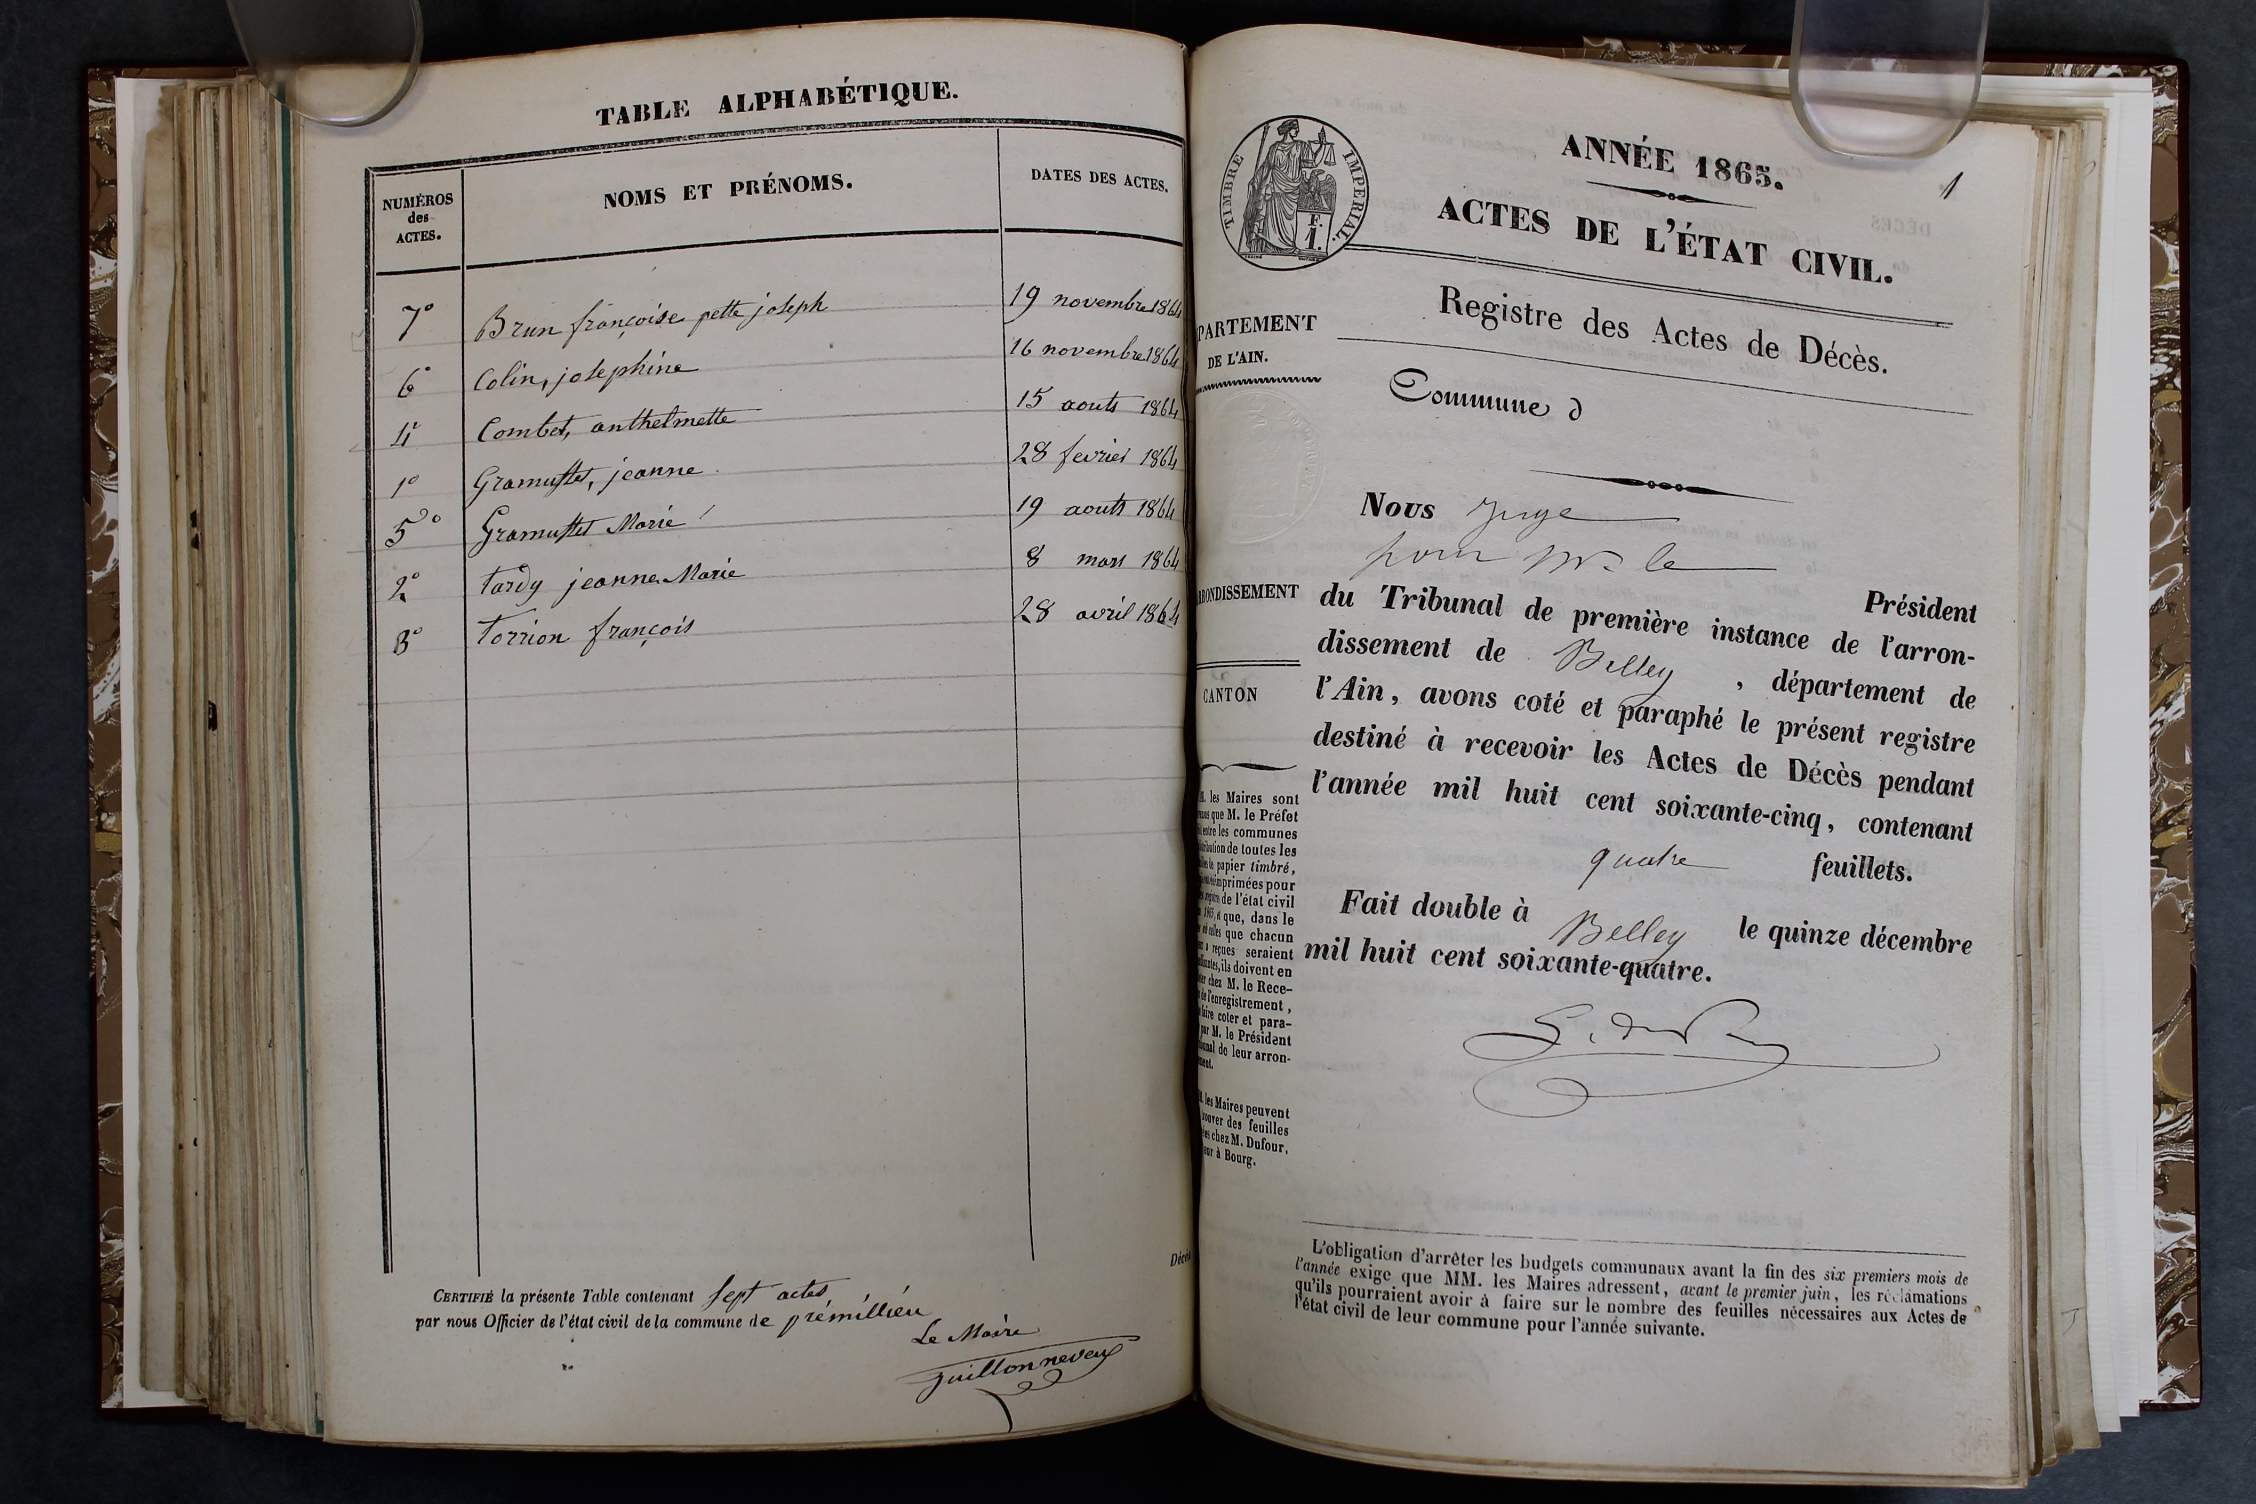 TABLE ALPHABÉTIQUE.
NUMÉROS
des
ACTES.
NOMS ET PRÉNOMS.
DATES DES ACTES.
7° Brun françoise pette joseph 19 novembre 1864
6° Colin, josephine 16 novembre 1864
4° Combet, anthelmette 15 aouts 1864
1° jeanne 28 fevrier 1864
5° Marie 19 aouts 1864
2° tardy jeanne Marie 8 mars 1864
3° torrion françois 28 avril 1864
Décès
CERTIFIÉ la présente Table contenant sept actes
par nous Officier de l'état civil de la commune de prémillieu
Le Maire
Guillon neveu
1
TIMBRE IMPÉRIAL.
F.
1.
ANNÉE 1865.
ACTES DE L'ÉTAT CIVIL.
Registre des Actes de Décès.
PARTEMENT
DE L'AIN.
Commune d
Nous Juge
pour le
Président
RONDISSEMENT
du Tribunal de première instance de l'arron-
dissement de Belley, département de
CANTON
l'Ain, avons coté et paraphé le présent registre
destiné à recevoir les Actes de Décès pendant
l'année mil huit cent soixante-cinq, contenant
quatre feuillets.
Fait double à Belley le quinze décembre
mil huit cent soixante-quatre.
les Maires sont
que M. le Préfet
entre les communes
de toutes les
papier timbré,
imprimées pour
de l'état civil
que, dans le
que chacun
reçues seraient
ils doivent en
chez M. le Rece-
de l'enregistrement,
faire coter et para-
par M. le Président
de leur arron-
les Maires peuvent
des feuilles
chez M. Dufour,
à Bourg.
L'obligation d'arrêter les budgets communaux avant la fin des six premiers mois de
l'année exige que MM. les Maires adressent, avant le premier juin, les réclamations
qu'ils pourraient avoir à faire sur le nombre des feuilles nécessaires aux Actes de
l'état civil de leur commune pour l'année suivante.